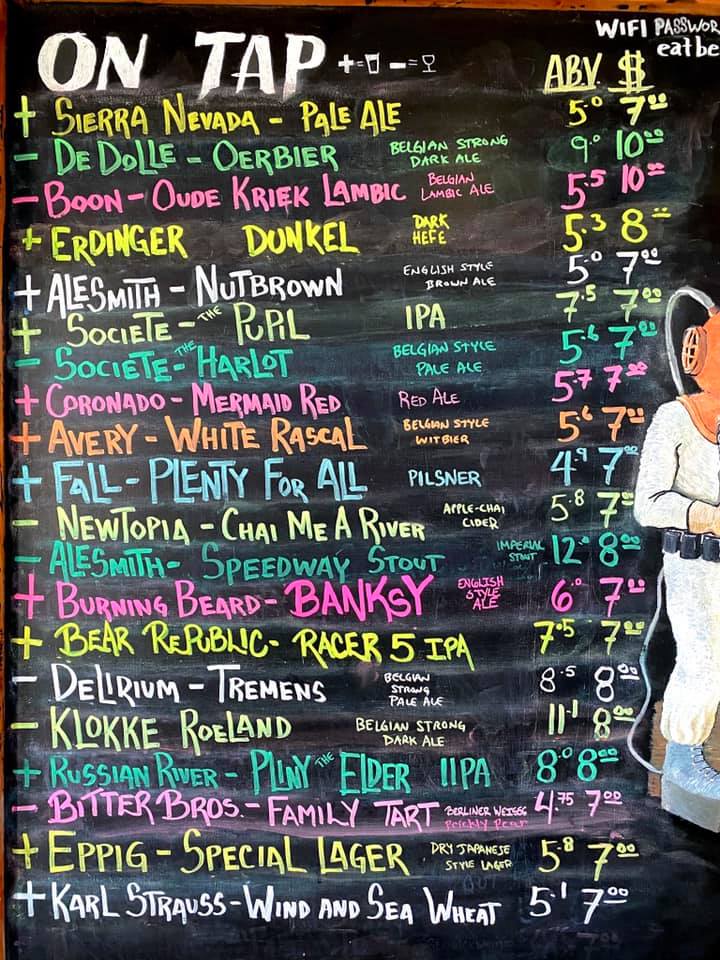 WIFI PASSWOR
eat be
ON TAP + = - = ABV. $
+ SIERRA NEVADA - PALE ALE 5.0 7.00
- DE DOLLE - OERBIER BELGIAN STRONG DARK ALE 9.0 10.00
- BOON - OUDE KRIEK LAMBIC BELGIAN LAMBIC ALE 5.5 10.00
+ ERDINGER DUNKEL DARK HEFE 5.3 8
+ ALESMITH - NUTBROWN ENGLISH STYLE BROWN ALE 5.0 7.00
+ SOCIETE - THE PUPIL IPA 7.5 7.00
- SOCIETE - THE HARLOT BELGIAN STYLE PALE ALE 5.6 7.00
+ CORONADO - MERMAID RED RED ALE 5.7 7.00
+ AVERY - WHITE RASCAL BELGIAN STYLE WITBIER 5.6 7.00
+ FALL - PLENTY FOR ALL PILSNER 4.9 7.00
- NEWTOPIA - CHAI ME A RIVER APPLE-CHAI CIDER 5.8 7.00
- ALESMITH - SPEEDWAY STOUT IMPERIAL STOUT 12.0 8.00
+ BURNING BEARD - BANKSY ENGLISH STYLE ALE 6.0 7.00
+ BEAR REPUBLIC - RACER 5 IPA 7.5 7.00
- DELIRIUM - TREMENS BELGIAN STRONG PALE ALE 8.5 8.00
- KLOKKE ROELAND BELGIAN STRONG DARK ALE 11.1 8.00
+ RUSSIAN RIVER - PLINY THE ELDER IIPA 8.0 8.00
- BITTER BROS. - FAMILY TART BERLINER WEISSE Prickly Pear 4.75 7.00
+ EPPIG - SPECIAL LAGER DRY JAPANESE STYLE LAGER 5.8 7.00
+ KARL STRAUSS - WIND AND SEA WHEAT 5.1 7.00